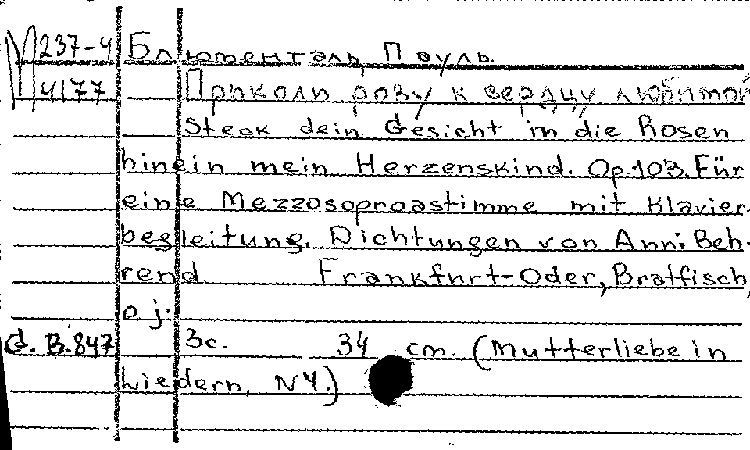 М237-4 Блюменталь, Пауль.
4177 Приколи розу к сердцу любимой
Steck dein Gesicht in die Rosen
hinein mein Herzenskind. Op.103. Für
eine Mezzosoproastimme mit Klavier-
begleitung. Dichtungen von Anni Beh-
rend Frankfurt-Oder, Bratfisch,
o. j.
G. B. 847 3c. 34 cm. (Mutterliebe in
Liedern, N4.)